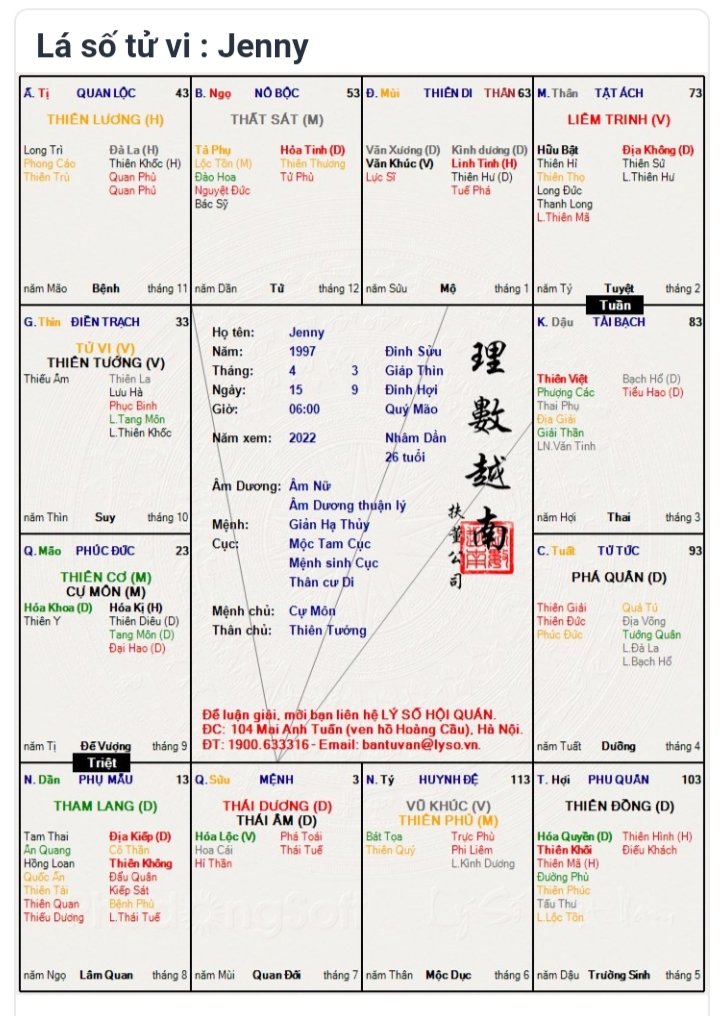 Lá số tử vi : Jenny
Ấ. Tị QUAN LỘC 43
THIÊN LƯƠNG (H)
Long Trì Đà La (H)
Phong Cáo Thiên Khốc (H)
Thiên Trù Quan Phủ
Quan Phù
năm Mão Bệnh tháng 11
B. Ngọ NÔ BỘC 53
THẤT SÁT (M)
Tả Phụ Hỏa Tinh (D)
Lộc Tồn (M) Thiên Thương
Đào Hoa Tử Phù
Nguyệt Đức
Bác Sỹ
năm Dần Tử tháng 12
Đ. Mùi THIÊN DI THÂN 63
Văn Xương (D) Kình dương (D)
Văn Khúc (V) Linh Tinh (H)
Lực Sĩ Thiên Hư (D)
Tuế Phá
năm Sửu Mộ tháng 1
M. Thân TẬT ÁCH 73
LIÊM TRINH (V)
Hữu Bật Địa Không (D)
Thiên Hỉ Thiên Sứ
Thiên Thọ L.Thiên Hư
Long Đức
Thanh Long
L.Thiên Mã
năm Tý Tuyệt tháng 2
Tuần
G. Thìn ĐIỀN TRẠCH 33
TỬ VI (V)
THIÊN TƯỚNG (V)
Thiếu Âm Thiên La
Lưu Hà
Phục Binh
L.Tang Môn
L.Thiên Khốc
năm Thìn Suy tháng 10
Họ tên: Jenny
Năm: 1997 Đinh Sửu
Tháng: 4 3 Giáp Thìn
Ngày: 15 9 Đinh Hợi
Giờ: 06:00 Quý Mão
Năm xem: 2022 Nhâm Dần
26 tuổi
Âm Dương: Âm Nữ
Âm Dương thuận lý
Mệnh: Giản Hạ Thủy
Cục: Mộc Tam Cục
Mệnh sinh Cục
Thân cư Di
Mệnh chủ: Cự Môn
Thân chủ: Thiên Tướng
理數越南
扶董公司
Để luận giải, mời bạn liên hệ LÝ SỐ HỘI QUÁN.
ĐC: 104 Mai Anh Tuấn (ven hồ Hoàng Cầu), Hà Nội.
ĐT: 1900.633316 - Email: bantuvan@lyso.vn.
K. Dậu TÀI BẠCH 83
Thiên Việt Bạch Hổ (D)
Phượng Các Tiểu Hao (D)
Thai Phụ
Địa Giải
Giải Thần
LN.Văn Tinh
năm Hợi Thai tháng 3
Q. Mão PHÚC ĐỨC 23
THIÊN CƠ (M)
CỰ MÔN (M)
Hóa Khoa (D) Hóa Kị (H)
Thiên Y Thiên Diêu (D)
Tang Môn (D)
Đại Hao (D)
năm Tị Đế Vượng tháng 9
Triệt
C. Tuất TỬ TỨC 93
PHÁ QUÂN (D)
Thiên Giải Quả Tú
Thiên Đức Địa Võng
Phúc Đức Tướng Quân
L.Đà La
L.Bạch Hổ
năm Tuất Dưỡng tháng 4
N. Dần PHỤ MẪU 13
THAM LANG (D)
Tam Thai Địa Kiếp (D)
Ân Quang Cô Thần
Hồng Loan Thiên Không
Quốc Ấn Đẩu Quân
Thiên Tài Kiếp Sát
Thiên Quan Bệnh Phù
Thiếu Dương L.Thái Tuế
năm Ngọ Lâm Quan tháng 8
Q. Sửu MỆNH 3
THÁI DƯƠNG (D)
THÁI ÂM (D)
Hóa Lộc (V) Phá Toái
Hoa Cái Thái Tuế
Hỉ Thần
năm Mùi Quan Đới tháng 7
N. Tý HUYNH ĐỆ 113
VŨ KHÚC (V)
THIÊN PHỦ (M)
Bát Tọa Trực Phù
Thiên Quý Phi Liêm
L.Kình Dương
năm Thân Mộc Dục tháng 6
T. Hợi PHU QUÂN 103
THIÊN ĐỒNG (D)
Hóa Quyền (D) Thiên Hình (H)
Thiên Khôi Điếu Khách
Thiên Mã (H)
Đường Phù
Thiên Phúc
Tấu Thư
L.Lộc Tồn
năm Dậu Trường Sinh tháng 5